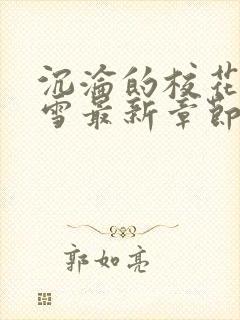 沉沦的校花
雪最新章节
郭如亮